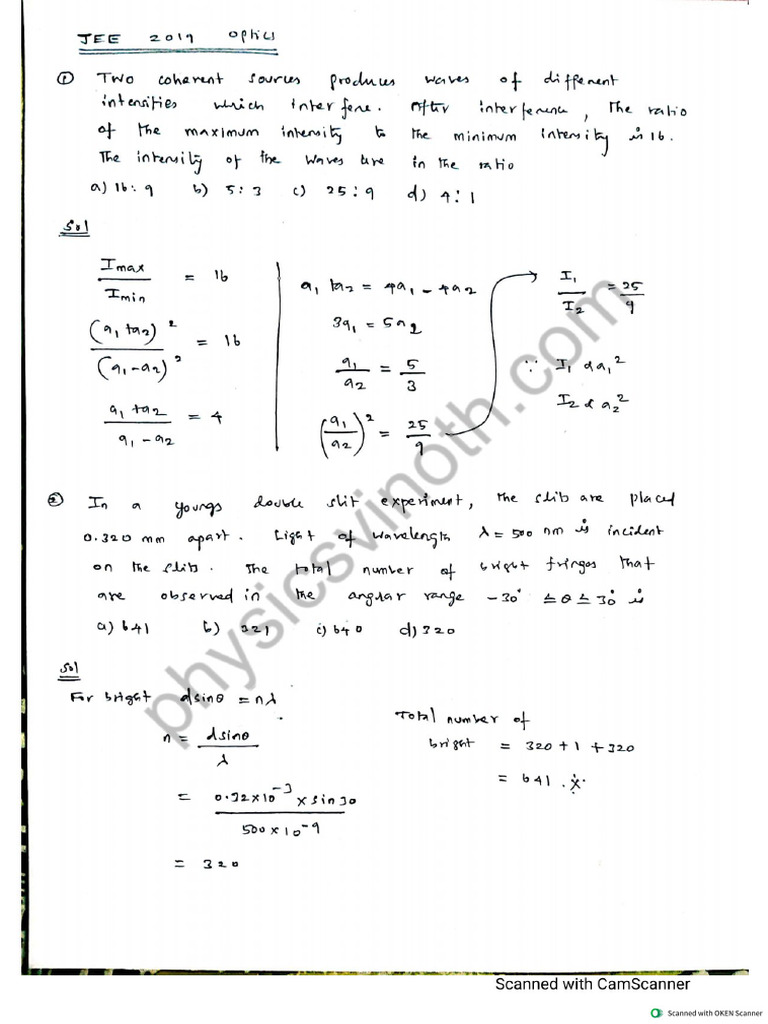 JEE 2019 Optics
① Two coherent sources produces waves of different
intensities which interfere. After interference, the ratio
of the maximum intensity to the minimum intensity is 16.
The intensity of the waves are in the ratio
a) 16:9 b) 5:3 c) 25:9 d) 4:1
Sol
Imax / Imin = 16
(a₁+a₂)² / (a₁-a₂)² = 16
a₁+a₂ / a₁-a₂ = 4
a₁+a₂ = 4a₁-4a₂
3a₁ = 5a₂
a₁/a₂ = 5/3
(a₁/a₂)² = 25/9
I₁/I₂ = 25/9
∵ I₁ α a₁²
I₂ α a₂²
② In a youngs double slit experiment, the slits are placed
0.320 mm apart. Light of wavelength λ = 500 nm is incident
on the slits. The total number of bright fringes that
are observed in the angular range -30° ≤ θ ≤ 30° is
a) 641 b) 321 c) 640 d) 320
Sol
For bright dsinθ = nλ
n = dsinθ / λ
= 0.32×10⁻³ × sin30 / 500×10⁻⁹
= 320
Total number of
bright = 320+1+320
= 641.
physicsvinoth.com
Scanned with CamScanner
Scanned with OKEN Scanner